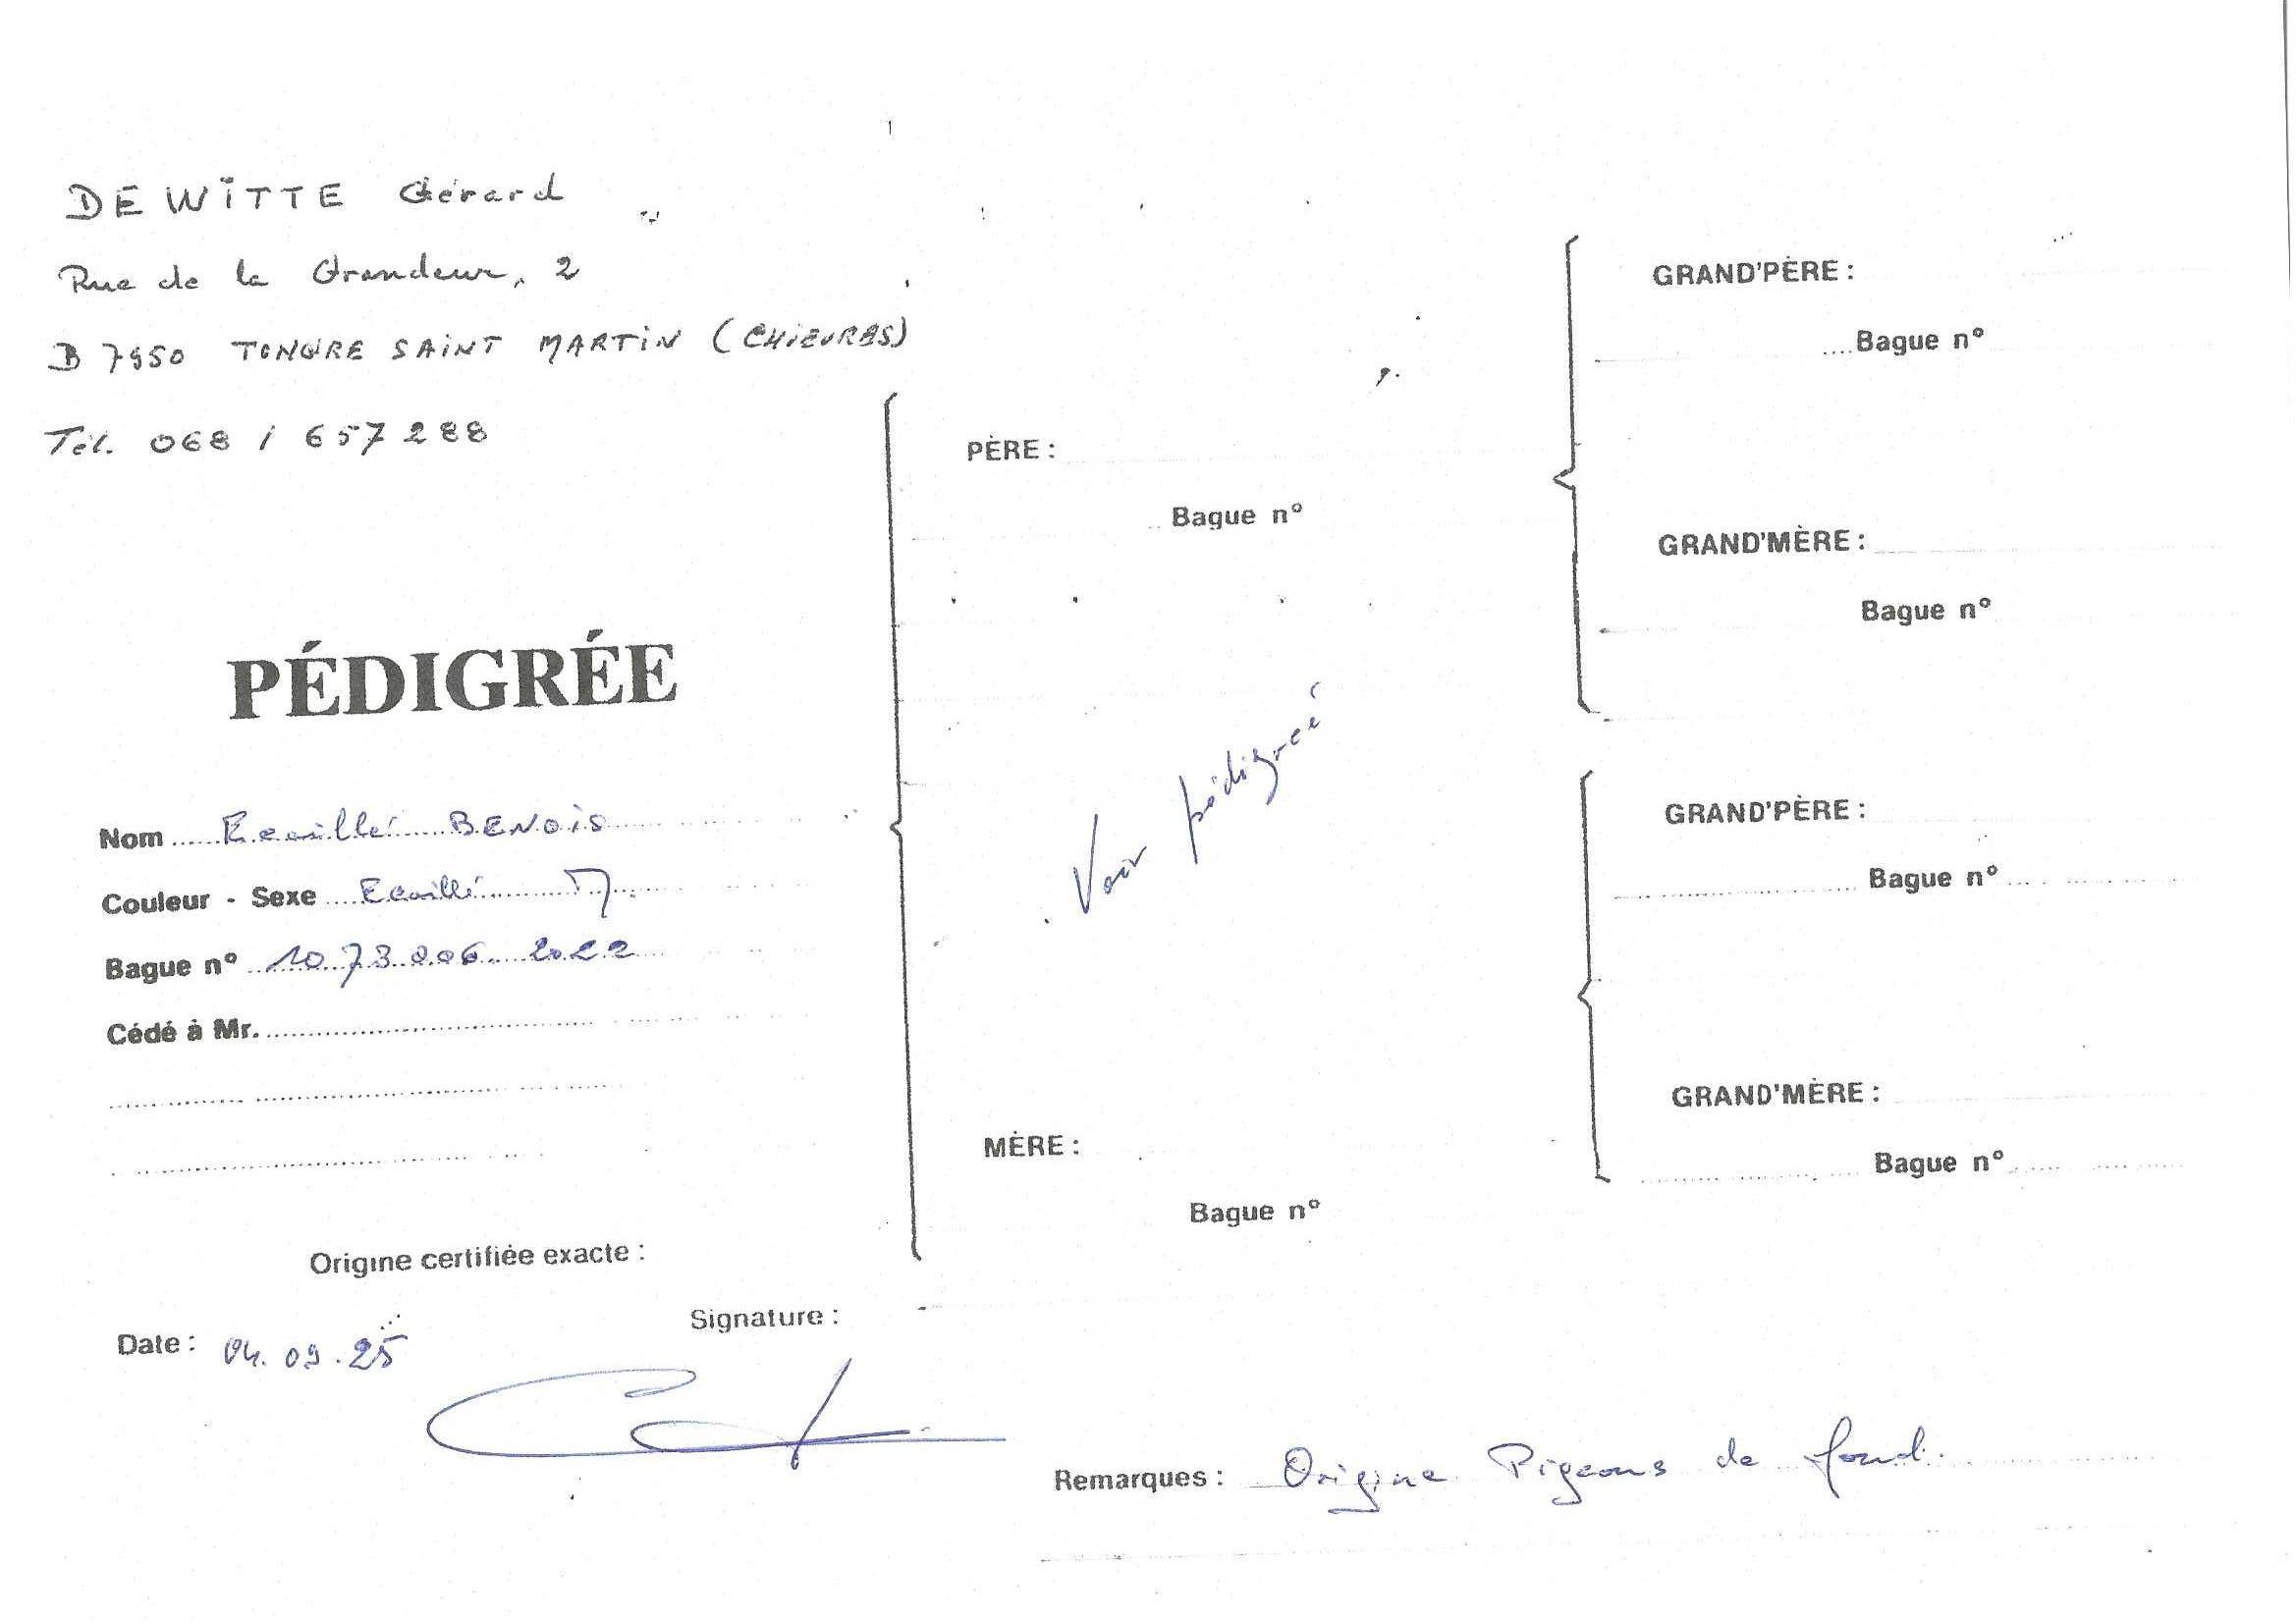 DEWITTE Gérard
Rue de la Grandeur, 2
B 7950 TONGRE SAINT MARTIN (CHIEVRES)
Tél. 068 / 657288
PÉDIGRÉE
Nom Ecaillé BENOIS
Couleur - Sexe Ecaillé M.
Bague n° 1073006. 2022
Cédé à Mr.
Origine certifiée exacte :
Date : 04.09.25
Signature :
PÈRE :
Bague n°
Voir pédigréé
MÈRE :
Bague n°
GRAND'PÈRE :
Bague n°
GRAND'MÈRE :
Bague n°
GRAND'PÈRE :
Bague n°
GRAND'MÈRE :
Bague n°
Remarques : Origine Pigeons de fond.